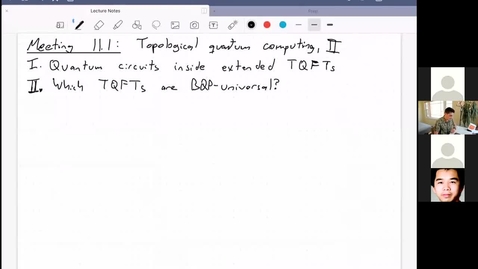 Lecture Notes
Meeting 11.1: Topological quantum computing, II
I. Quantum circuits inside extended TQFTs
II. Which TQFTs are BQP-universal?